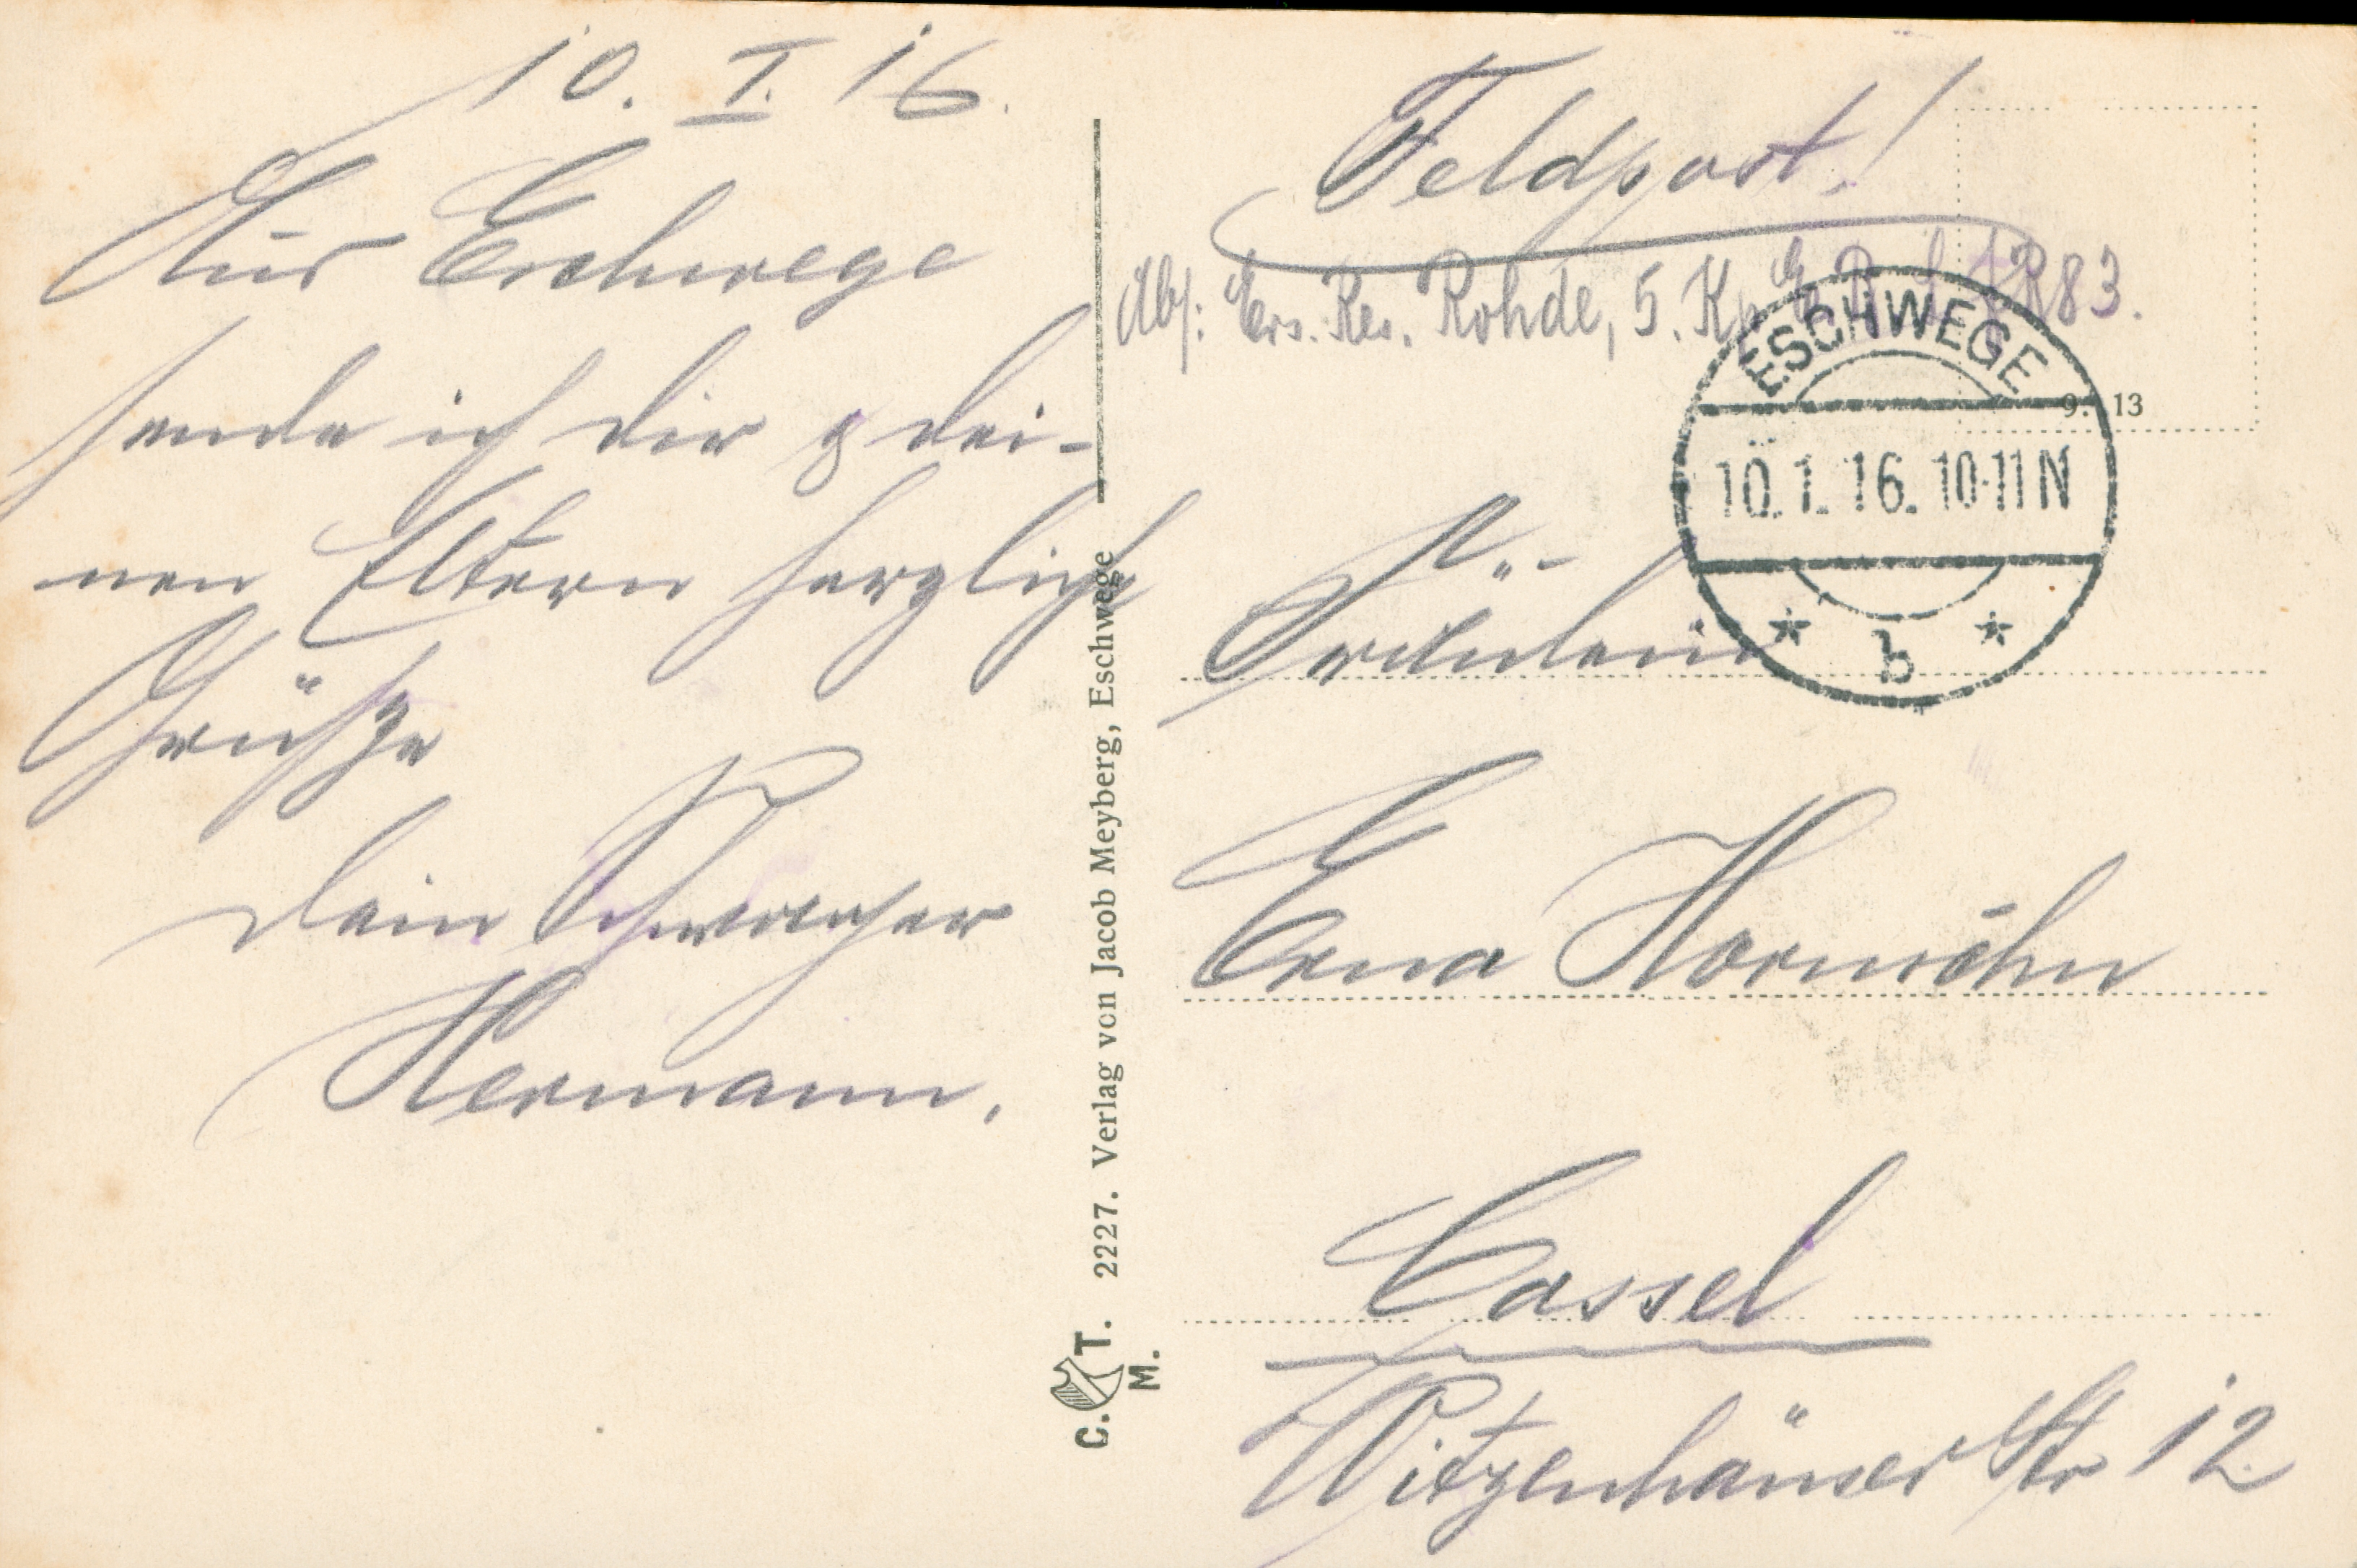 10. I. 16.
Aus Eschwege
sende ich dir & dei-
nen Eltern herzliche
Grüße
dein Schwager
Hermann.
C. T. M. 2227. Verlag von Jacob Meyberg, Eschwege
Feldpost!
Abs: Ers. Res. Rohde, 5. Kp. R 83.
ESCHWEGE
10.1.16.10-11N
* b *
9. 13
An
Fräulein
Erna
Cassel
Witzenhäuser Str 12